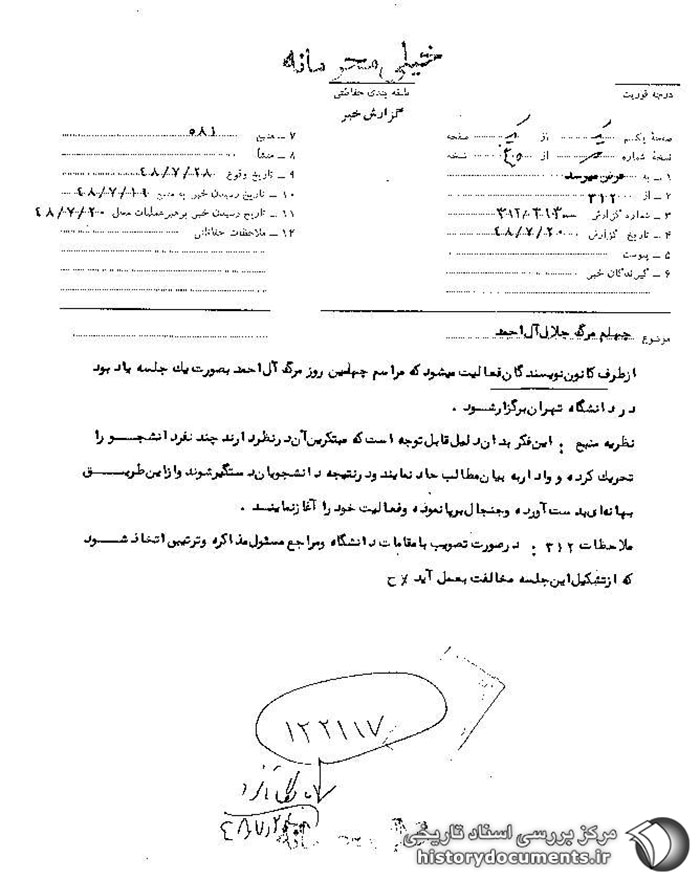 خیلی محرمانه
طبقه بندی حفاظتی
درجه فوریت
گزارش خبر
صفحهٔ یکم یک از یک صفحه
نسخهٔ شماره از نسخه
۱ ــ به عرض میرسد
۲ ــ از ۳۱۲
۳ ــ شماره گزارش
۴ ــ تاریخ گزارش ۴۸/۷/۲۰
۵ ــ پیوست
۶ ــ گیرندگان خبر
۷ ــ منبع ۵۸۱
۸ ــ منشأ
۹ ــ تاریخ وقوع ۴۸/۷/۲۸
۱۰ ــ تاریخ رسیدن خبر به منبع ۴۸/۷/۱۹
۱۱ ــ تاریخ رسیدن خبر برهبر عملیات محل ۴۸/۷/۲۰
۱۲ ــ ملاحظات حفاظتی
موضوع چهلم مرگ جلال آل احمد
از طرف کانون نویسندگان فعالیت میشود که مراسم چهلمین روز مرگ آل احمد بصورت یک جلسه یاد بود
در دانشگاه تهران برگزار شود .
نظریه منبع : این فکر بدان دلیل قابل توجه است که مبتکرین آن در نظر دارند چند نفر دانشجو را
تحریک کرده و وادار به بیان مطالب حاد نمایند و در نتیجه دانشجویان دستگیر شوند و از این طریق
بهانه ای بدست آورده و جنجال بر پا نموده و فعالیت خود را آغاز نمایند .
ملاحظات ۳۱۲ : در صورت تصویب با مقامات دانشگاه و مراجع مسئول مذاکره و ترتیبی اتخاذ شود
که از تشکیل این جلسه مخالفت بعمل آید ٪ ح
۱۲۲۱۱۷
مرکز بررسی اسناد تاریخی
historydocuments.ir